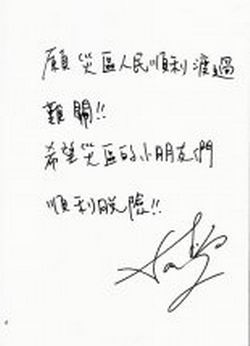 願災區人民順利渡過
難關!!
希望災區的小朋友們
順利脱險!!